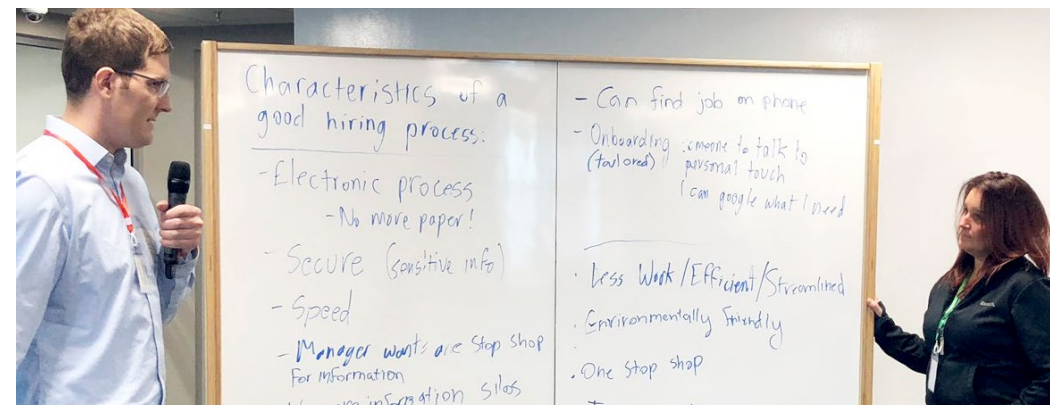 Characteristics of a
good hiring process:
- Electronic process
- No more paper!
- Secure (sensitive info)
- Speed
- Manager wants one stop shop
For information
information silos
- Can find job on phone
- Onboarding someone to talk to
(tailored) personal touch
I can google what I need
· Less Work/Efficient/Streamlined
· Environmentally Friendly
· One stop shop